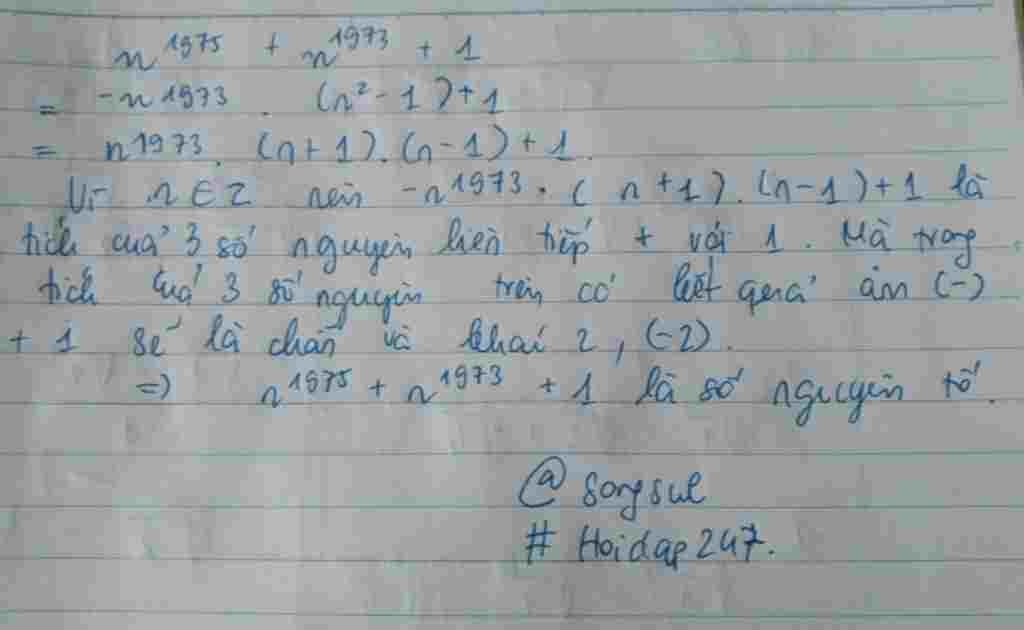 n^1975 + n^1973 + 1
= -n^1973 . (n² - 1) + 1
= n^1973 . (n + 1) . (n - 1) + 1.
Vì n ∈ Z nên -n^1973 . ( n + 1 ) . (n - 1) + 1 là
tích cuả 3 số nguyên liên tiếp + với 1 . Mà trong
tích cuả 3 số nguyên trên có kết quả âm (-)
+ 1 sẽ là chẵn và khác 2 , (-2) .
=> n^1975 + n^1973 + 1 là số nguyên tố .
@ songsuk
# Hoidap247.